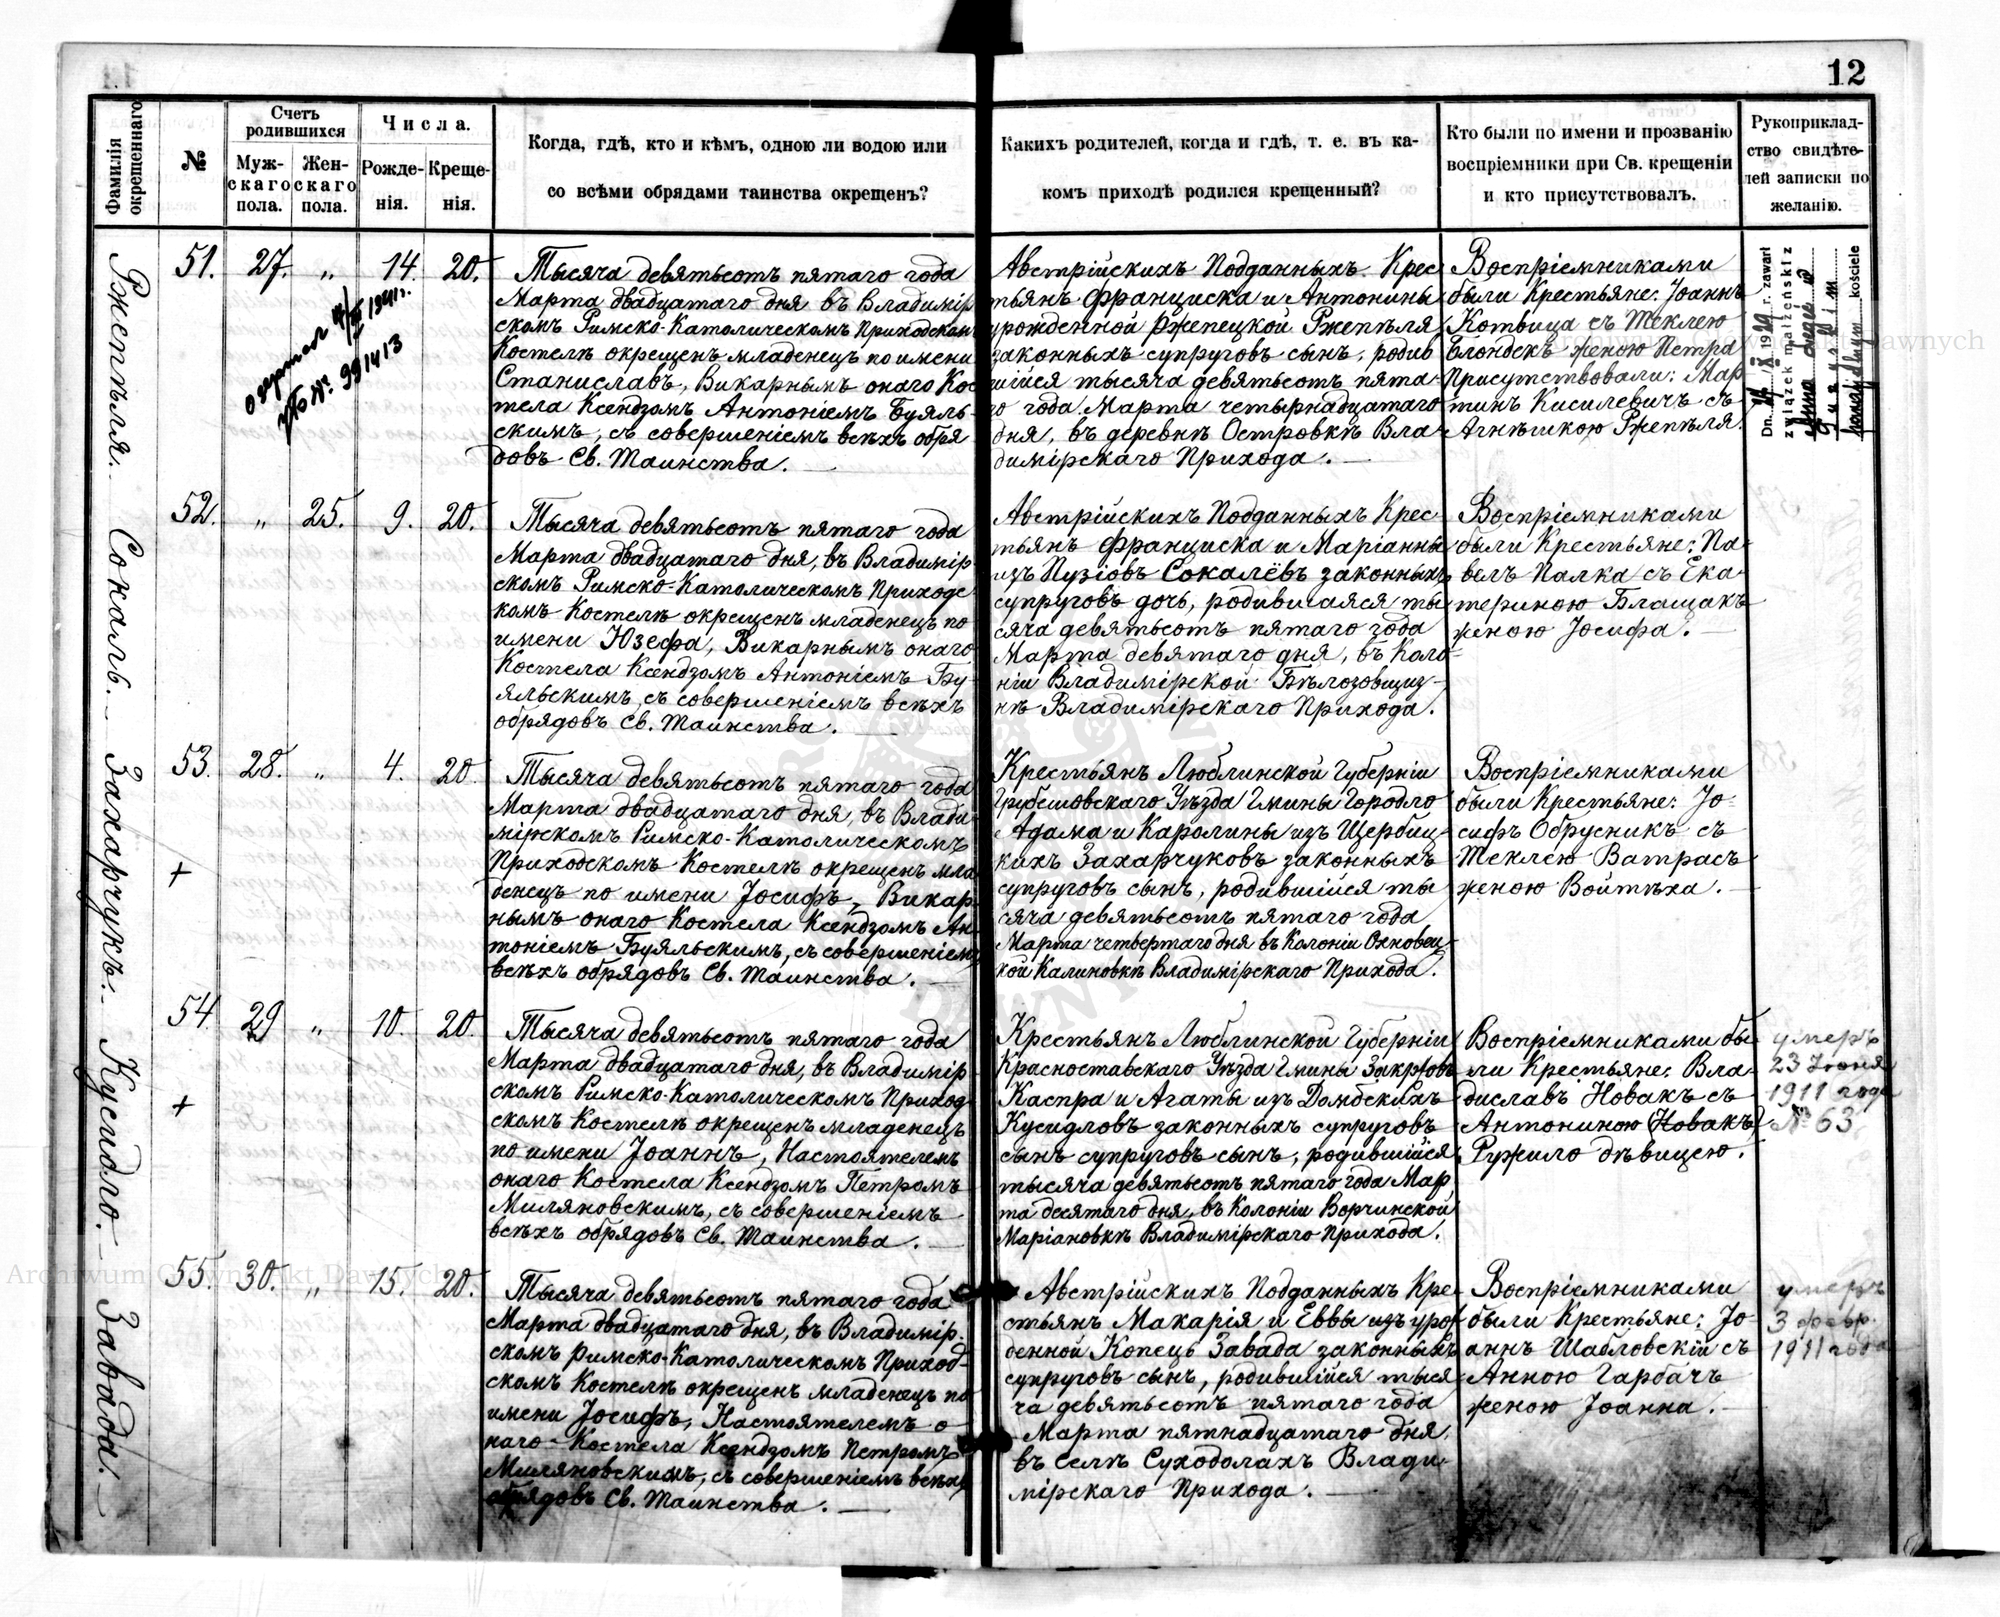 12
Фамилія окрещеннаго.
№
Счетъ родившихся
Муж-скаго пола.
Жен-скаго пола.
Числа.
Рожде-нія.
Креще-нія.
Когда, гдѣ, кто и кѣмъ, одною ли водою или
со всѣми обрядами таинства окрещенъ?
Какихъ родителей, когда и гдѣ, т. е. въ ка-
комъ приходѣ родился крещенный?
Кто были по имени и прозванію
воспріемники при Св. крещеніи
и кто присутствовалъ.
Рукоприклад-
ство свидѣте-
лей записки по
желанію.
Ржепѣля.
51. 27. „ 14. 20.
№ 991413
Тысяча девятьсотъ пятаго года
Марта двадцатаго дня въ Владимір
скомъ Римско-Католическомъ Приходском
Костелѣ окрещенъ младенецъ по имени
Станиславъ, Викарнымъ онаго Кос
тела Ксендзомъ Антоніемъ Буяль-
скимъ, съ совершеніемъ всѣхъ обря
довъ Св. Таинства.
Австрійскихъ Подданныхъ Крес
тьянъ Франциска и Антонины
урожденной Ржепецкой Ржепѣля
законныхъ супруговъ сынъ, родив
шійся тысяча девятьсотъ пята-
го года Марта четырнадцатаго
дня, въ деревнѣ Островкѣ Вла-
димірскаго Прихода.
Воспріемниками
были Крестьяне: Іоаннъ
Котвица съ Теклею
Блондекъ женою Петра
Присутствовали: Мар
тинъ Кисилевичъ съ
Агнѣшкою Ржепѣля.
Dn. 1929 r. zawarł
związek małżeński z
kościele
Сокаль.
52. „ 25. 9. 20.
Тысяча девятьсотъ пятаго года
Марта двадцатаго дня, въ Владимір
скомъ Римско-Католическомъ Приходс
комъ Костелѣ окрещенъ младенецъ по
имени Юзефа, Викарнымъ онаго
Костела Ксендзомъ Антоніемъ Бу-
яльскимъ, съ совершеніемъ всѣхъ
обрядовъ Св. Таинства.
Австрійскихъ Подданныхъ Крес-
тьянъ Франциска и Маріанны
изъ Пузіовъ Сокалёвъ законныхъ
супруговъ дочь, родившаяся ты
сяча девятьсотъ пятаго года
Марта девятаго дня, въ Коло-
ніи Владимірской Бѣлозовщиз-
нѣ Владимірскаго Прихода.
Воспріемниками
были Крестьяне: Па-
велъ Палка съ Ека-
териною Блащакъ
женою Іосифа.
Захарчукъ.
53. 28. „ 4. 20
+
Тысяча девятьсотъ пятаго года
Марта двадцатаго дня, въ Влади-
мірскомъ Римско-Католическомъ
Приходскомъ Костелѣ окрещенъ мла
денецъ по имени Іосифъ, Викар-
нымъ онаго Костела Ксендзомъ Ан
тоніемъ Буяльскимъ, съ совершеніемъ
всѣхъ обрядовъ Св. Таинства.
Крестьянъ Люблинской Губерніи
Грубешовскаго Уѣзда Гмины Городло
Адама и Каролины изъ Щербиц
кихъ Захарчуковъ законныхъ
супруговъ сынъ, родившійся ты
сяча девятьсотъ пятаго года
Марта четвертаго дня въ Колоніи Охновец
кой Калиновкѣ Владимірскаго Прихода.
Воспріемниками
были Крестьяне: Іо-
сифъ Обрусникъ съ
Теклею Ватрасъ
женою Войтѣха.
Кусидло.
54. 29 „ 10. 20.
+
Тысяча девятьсотъ пятаго года
Марта двадцатаго дня, въ Владимір-
скомъ Римско-Католическомъ Приход-
скомъ Костелѣ окрещенъ младенецъ
по имени Іоаннъ, Настоятелемъ
онаго Костела Ксендзомъ Петромъ
Миляновскимъ, съ совершеніемъ
всѣхъ обрядовъ Св. Таинства.
Крестьянъ Люблинской Губерніи
Красноставскаго Уѣзда Гмины Закржовъ
Каспра и Агаты изъ Домбскихъ
Кусидловъ законныхъ супруговъ
сынъ супруговъ сынъ, родившійся
тысяча девятьсотъ пятаго года Мар
та десятаго дня, въ Колоніи Ворчинской
Маріановкѣ Владимірскаго Прихода.
Воспріемниками бы-
ли Крестьяне: Вла-
диславъ Новакъ съ
Антониною (Новакъ)
Ружило дѣвицею.
умеръ
23 Іюня
1911 года
№ 63
Завада.
55. 30. „ 15. 20.
Тысяча девятьсотъ пятаго года
Марта двадцатаго дня, въ Владимір-
скомъ Римско-Католическомъ Приход-
скомъ Костелѣ окрещенъ младенецъ по
имени Іосифъ, Настоятелемъ о-
наго Костела Ксендзомъ Петромъ
Миляновскимъ, съ совершеніемъ всѣхъ
обрядовъ Св. Таинства.
Австрійскихъ Подданныхъ Кре-
стьянъ Макарія и Еввы изъ уро
денной Копець Завада законныхъ
супруговъ сынъ, родившійся тыся
ча девятьсотъ пятаго года
Марта пятнадцатаго дня,
въ Селѣ Суходолахъ Влади-
мірскаго Прихода.
Воспріемниками
были Крестьяне: Іо-
аннъ Шабловскій съ
Анною Гарбачъ
женою Іоанна.
умеръ
3 февр.
1911 года